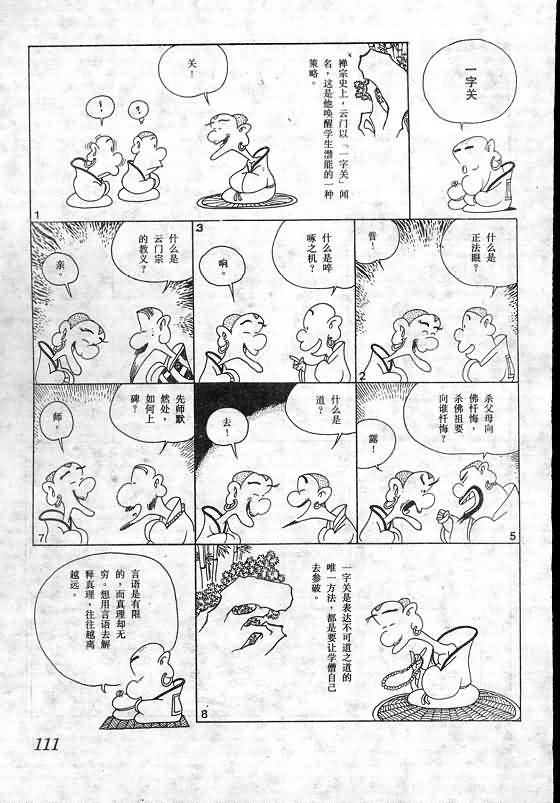 一字关
禅宗史上，云门以「一字关」闻
名，这是他唤醒学生潜能的一种
策略。
关！
！
？
1
什么是
正法眼？
普！
2
什么是啐
啄之机？
响。
3
什么是
云门宗
的教义？
亲。
杀父母向
佛忏悔，
杀佛祖要
向谁忏悔？
露！
5
什么是
道？
去！
先师默
然处，
如何上
碑？
师。
7
一字关是表达不可道之道的
唯一方法，都是要让学僧自己
去参破。
8
言语是有限
的，而真理却无
穷。想用言语去解
释真理，往往越离
越远。
111